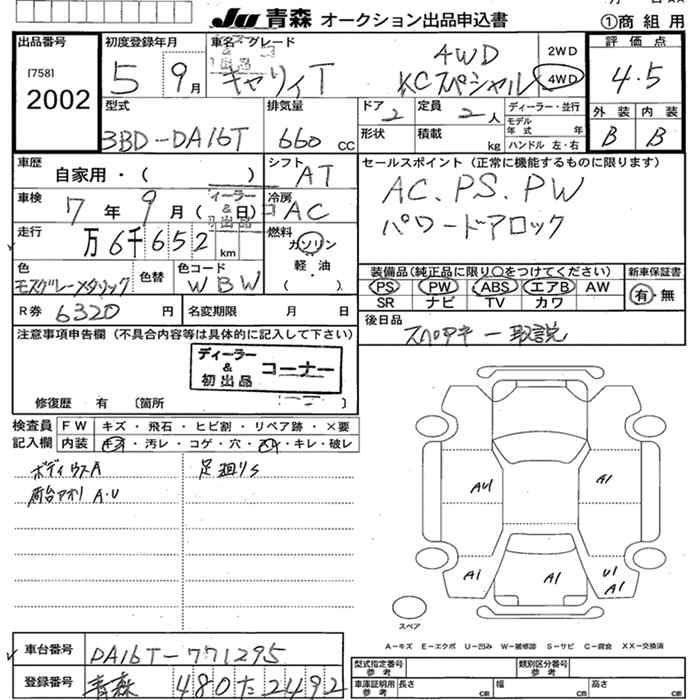 Ju 青森 オークション出品申込書
①商 組 用
出品番号
[758]
2002
初度登録年月
5 9月
車名 グレード
キャリィT
4WD
KCスペシャル
2WD
4WD
評 価 点
4.5
外 装 内 装
B B
型式
3BD-DA16T
排気量
660 CC
ドア
2
定員
2人
形状
積載
kg
ディーラー・並行
モデル
年 式 年
ハンドル 左・右
車歴
自家用・( )
シフト
AT
車検
7年 9月( 日)
ディーラー
&
初出品
冷房
AC
走行
万6千652 km
燃料
ガソリン
軽・油
( )
色
モスグレーメタリック
色替
色コード
WBW
R券 6320 円
名変期限 月 日
セールスポイント(正常に機能するものに限ります)
AC.PS.PW
パワードアロック
装備品(純正品に限り○をつけてください)
新車保証書
PS PW ABS エアB AW
SR ナビ TV カワ
有・無
後日品
スペアキー 取説
注意事項申告欄(不具合内容等は具体的に記入して下さい)
ディーラー
&
初出品
コーナー
修復歴 有 〔箇所
検査員
記入欄
FW キズ・飛石・ヒビ割・リペア跡・×要
内装 キズ・汚レ・コゲ・穴・・キレ・破レ
ボディ ウスA
荷台アオリ A・U
足廻りS
AU
A1
A1
A1
U1
A1
スペア
A-キズ E-エクボ U-凹み W-補修跡 S-サビ C-腐食 XX-交換済
車台番号
DA16T-771295
登録番号
青森 480 た 2492
型式指定番号
参考
類別区分番号
参考
車庫証明用
参考
長さ cm
幅 cm
高さ cm